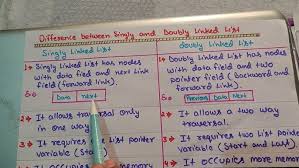 Difference between Singly and Doubly Linked List
Singly Linked List
1→ Singly Linked List has nodes
with data field and next link
field (forward link).
Data Next
2→ It allows traversal only
in one way
3→ It requires one List pointer
variable (Start)
4→ It occupies less memory
doubly Linked List
1→ Doubly Linked List has
nodes with data field and two
pointer field (Backword and
forword Link).
Previous Data Next
2→ It allows a two way
traversal.
3→ It requires two List pointer
variable (Start and Last)
4→ It occupies more memory